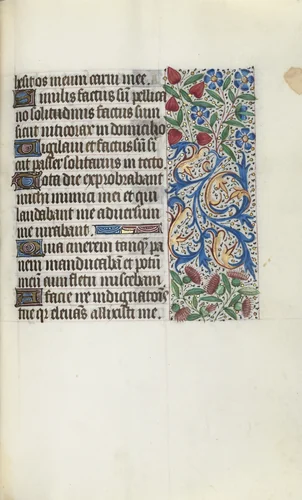 hesit os meum carni mee.
Similis factus sũ pellica
no solitudinis factus sum
sicut niticorax in domicilio
Vigilaui et factus sũ si
cut passer solitarius in tecto
Tota die exprobrabant
michi inimici mei et qui
laudabant me aduersum
me iurabant
Quia cinerem tanq̃ pa
nem manducabam et potũ
meũ cum fletu miscebam.
A facie ire indignatiõis
tue qr eleuãs allisisti me.